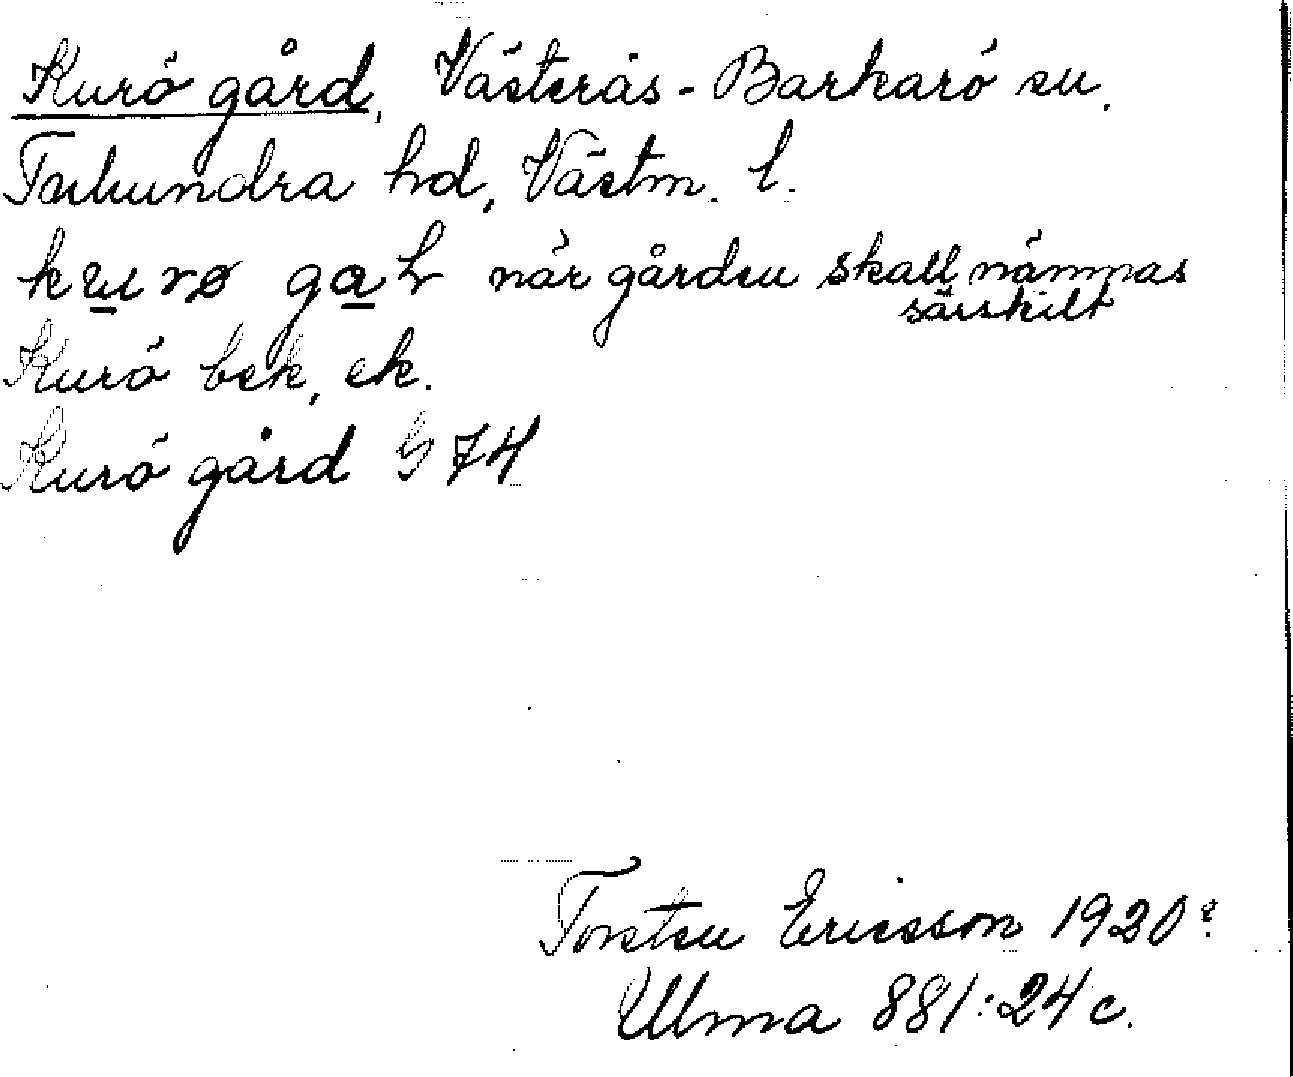 Kurö gård, Västerås-Barkarö sn.
Tuhundra hd, Västm. l.
kurø gaɽ när gården skall nämnas
särskilt
Kurö bek, ek.
Kurö gård G 74
Torsten Ericsson 1920?
Ulma 881:24 c.